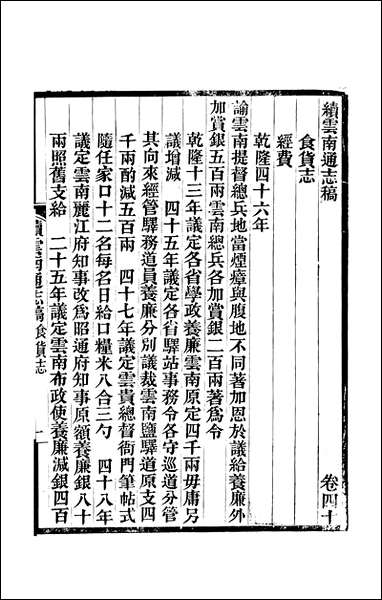 續雲南通志稿　卷四十
食貨志
經費
乾隆四十六年
諭雲南提督總兵地當煙瘴與腹地不同著加恩於議給養廉外
加賞銀五百兩雲南總兵各加賞銀二百兩著爲令
乾隆十三年議定各省學政養廉雲南原定四千兩毋庸另
議增減　四十五年議定各省驛站事務令各守巡道分管
其向來經管驛務道員養廉分別議裁雲南鹽驛道原支四
千兩酌減五百兩　四十七年議定雲貴總督衙門筆帖式
隨任家口十二名每名日給口糧米八合三勺　四十八年
議定雲南麗江府知事改爲昭通府知事原額養廉銀八十
兩照舊支給　二十五年議定雲南布政使養廉減銀四百
續雲南通志稿食貨志　一